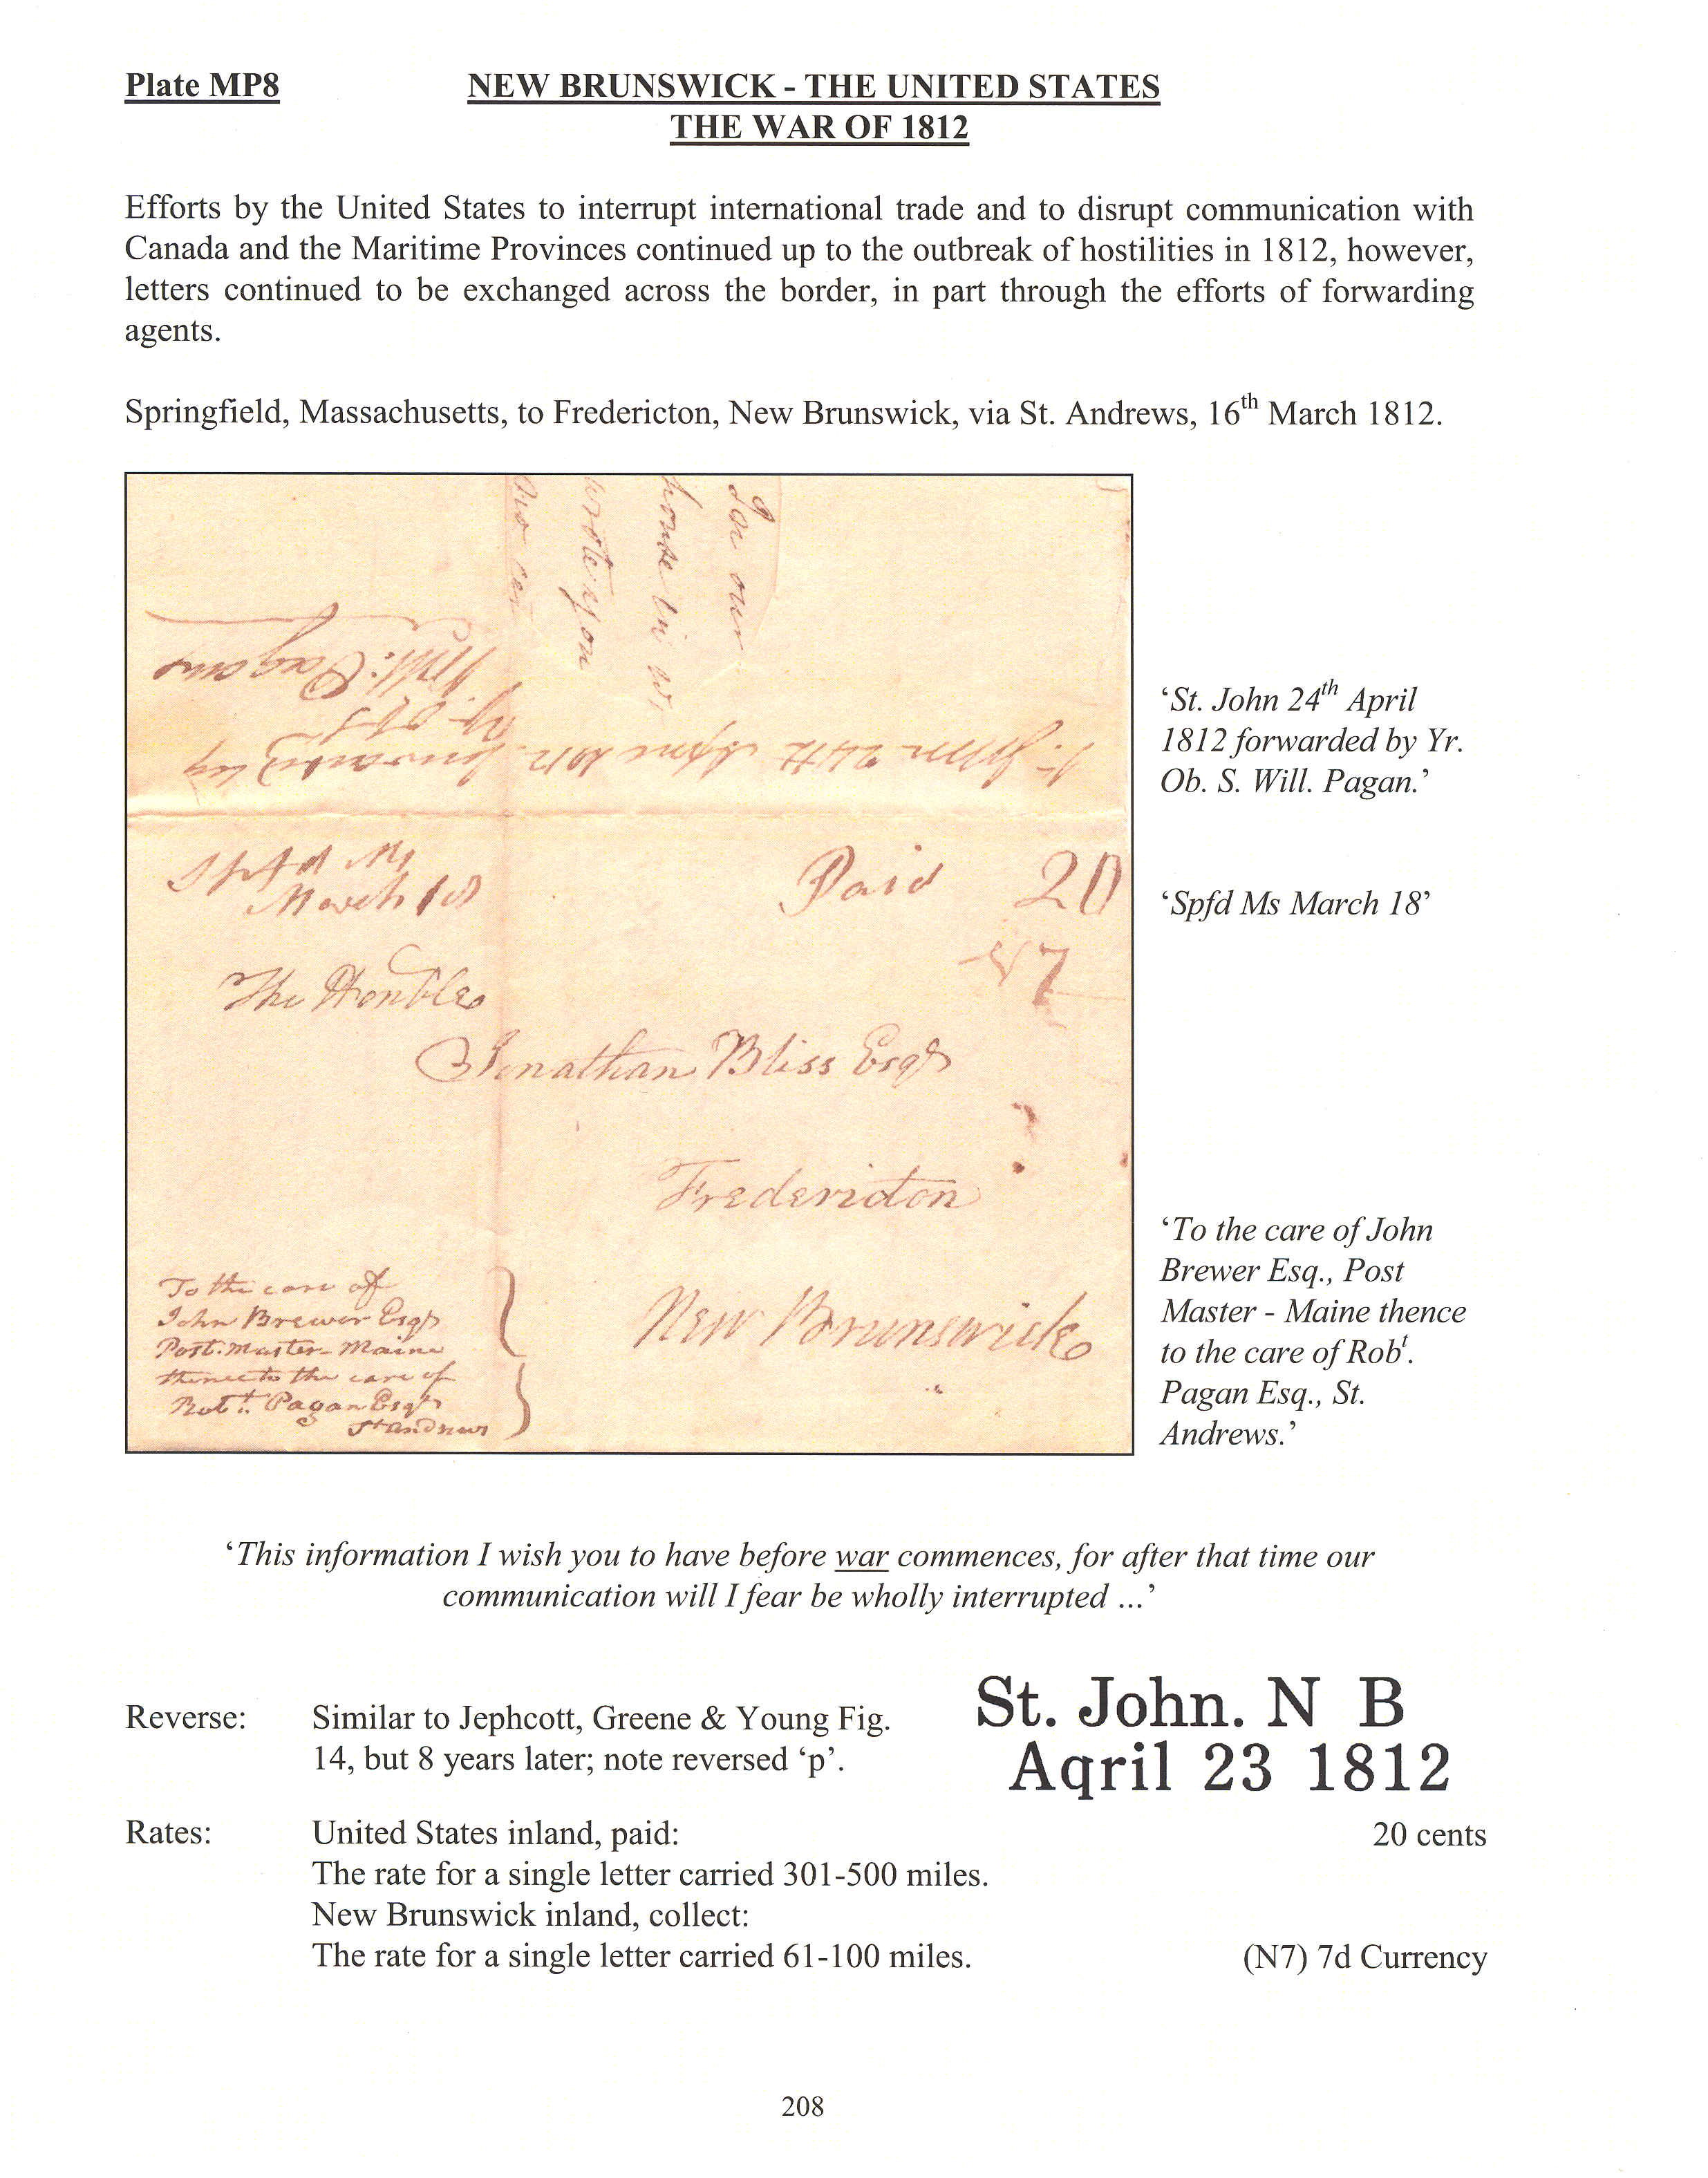 Plate MP8
NEW BRUNSWICK - THE UNITED STATES
THE WAR OF 1812
Efforts by the United States to interrupt international trade and to disrupt communication with
Canada and the Maritime Provinces continued up to the outbreak of hostilities in 1812, however,
letters continued to be exchanged across the border, in part through the efforts of forwarding
agents.
Springfield, Massachusetts, to Fredericton, New Brunswick, via St. Andrews, 16th March 1812.
for our
house in W.
wrote upon
St. John 24th April 1812 forwarded by
Yr. Ob. S
Will: Pagan
Spfd Ms
March 18
Paid 20
N7
The Honble
Jonathan Bliss Esqr
Fredericton
New Brunswick
To the care of
John Brewer Esqr
Post-Master - Maine
thence to the care of
Robt. Pagan Esqr
St Andrews
‘St. John 24th April
1812 forwarded by Yr.
Ob. S. Will. Pagan.’
‘Spfd Ms March 18’
‘To the care of John
Brewer Esq., Post
Master - Maine thence
to the care of Robt.
Pagan Esq., St.
Andrews.’
‘This information I wish you to have before war commences, for after that time our
communication will I fear be wholly interrupted ...’
Reverse: Similar to Jephcott, Greene & Young Fig.
14, but 8 years later; note reversed ‘p’.
St. John. N B
Aqril 23 1812
Rates: United States inland, paid: 20 cents
The rate for a single letter carried 301-500 miles.
New Brunswick inland, collect:
The rate for a single letter carried 61-100 miles. (N7) 7d Currency
208